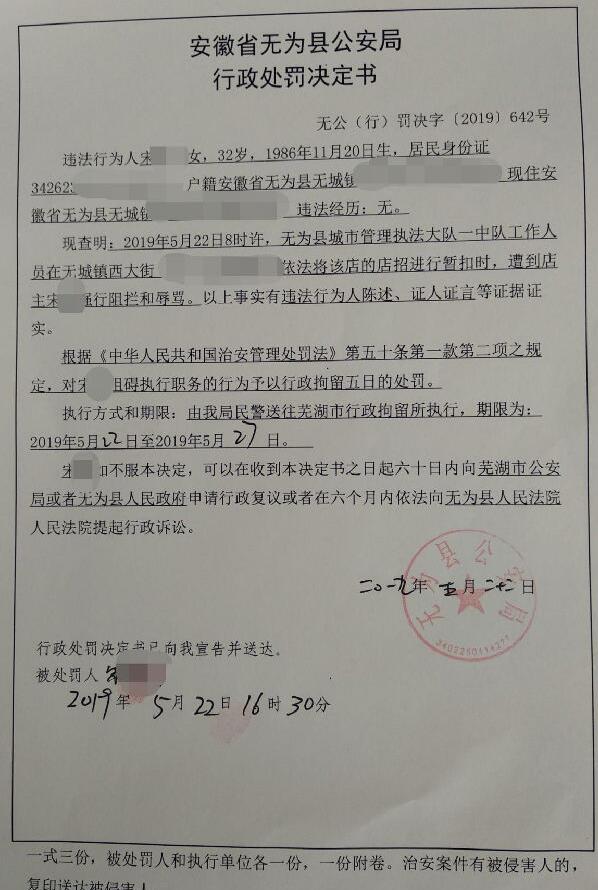 安徽省无为县公安局
行政处罚决定书
无公（行）罚决字〔2019〕642号
违法行为人宋 女，32岁，1986年11月20日生，居民身份证
342623 户籍安徽省无为县无城镇 现住安
徽省无为县无城镇 违法经历：无。
现查明：2019年5月22日8时许，无为县城市管理执法大队一中队工作人
员在无城镇西大街 依法将该店的店招进行暂扣时，遭到店
主宋 强行阻拦和辱骂。以上事实有违法行为人陈述、证人证言等证据证
实。
根据《中华人民共和国治安管理处罚法》第五十条第一款第二项之规
定，对宋 阻碍执行职务的行为予以行政拘留五日的处罚。
执行方式和期限：由我局民警送往芜湖市行政拘留所执行，期限为：
2019年5月22日至2019年5月27日。
宋 如不服本决定，可以在收到本决定书之日起六十日内向芜湖市公安
局或者无为县人民政府申请行政复议或者在六个月内依法向无为县人民法院
人民法院提起行政诉讼。
无为县公安局
二〇一九年 五月 二十二日
行政处罚决定书已向我宣告并送达。
被处罚人 宋
2019年 5月 22日 16时 30分
一式三份，被处罚人和执行单位各一份，一份附卷。治安案件有被侵害人的，
复印送达被侵害人